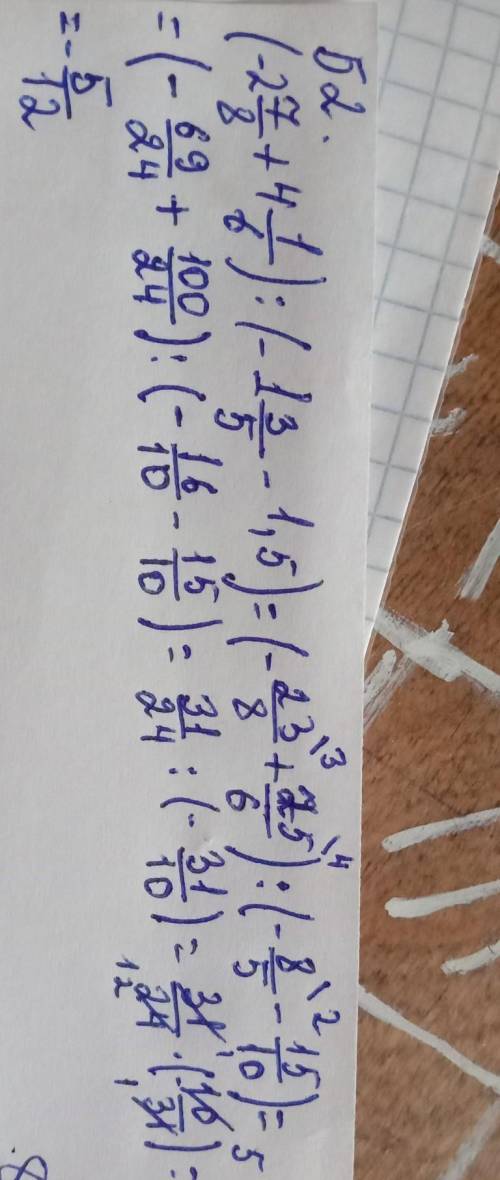 52.
(-2 7/8 + 4 1/6) : (-1 3/5 - 1,5) = (-23/8 \3 + 25/6 \4) : (-8/5 \2 - 15/10) =
= (-69/24 + 100/24) : (-16/10 - 15/10) = 31/24 : (-31/10) = 31 1/24 12 · (10 5/31 1) =
= -5/12
8